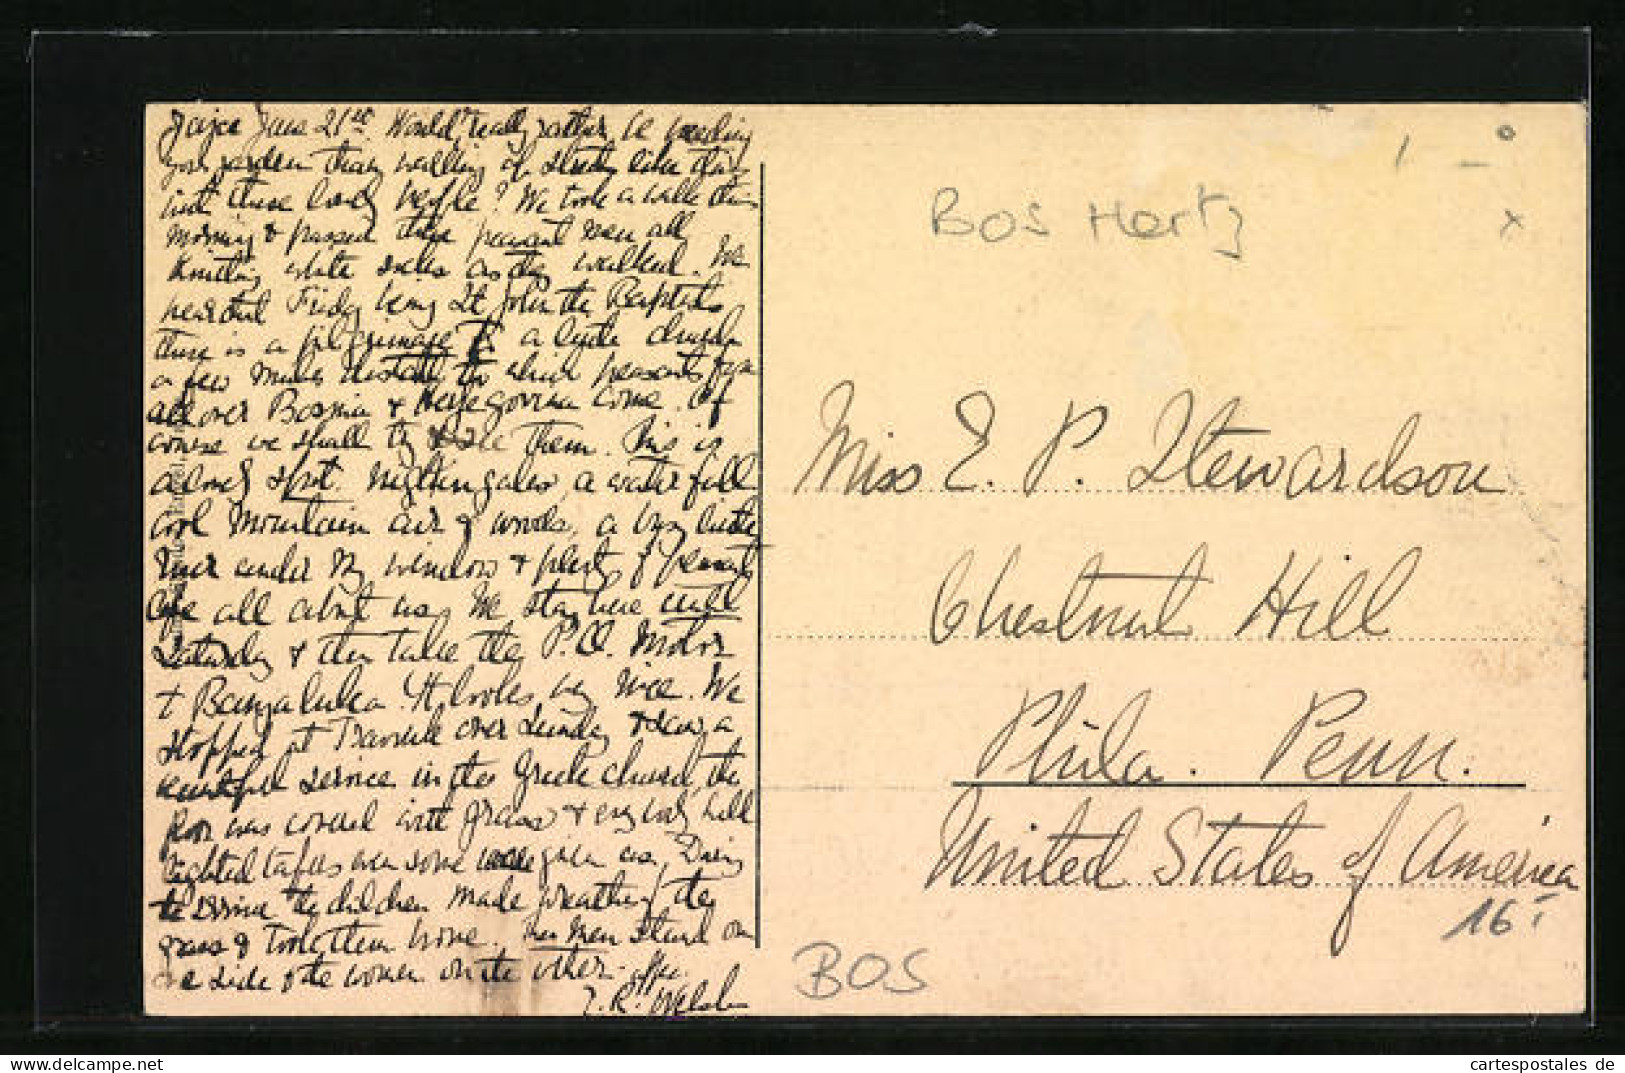 Jajce June 21st. Would really rather be weeding
your garden than walking of streets like this
with these lovely people? We took a walk this
morning & passed three peasant men all
Knitting white socks as they walked. We
hear that Friday being St John the Baptists
there is a pilgrimage to a little church
a few miles distant to which peasants from
all over Bosnia & Herzegovina come. Of
course we shall try & see them. This is
a lovely spot. Nightingales, a water fall
cool mountain air & woods, a big little
river under my window & plenty of peasants
life all about us. We stay here until
Saturday & then take the P.O. Motor
to Banjaluka. It looks very nice. We
stopped at Travnik over Sunday & saw a
beautiful service in the Greek church, the
floor was covered with grass & every body held
lighted tapers even some were given us. During
the service the children made wreaths of the
grass & took them home. The men stand on
one side & the women on the other. Affec.
E. R. Welsh
BOS Hertz
Miss E. P. Stewardson
Chestnut Hill
Phila. Penn.
United States of America
16
BOS
cartespostales de